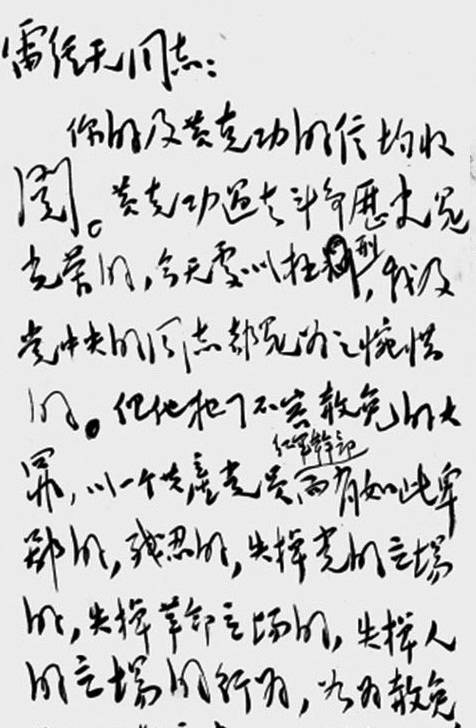 雷经天同志:
你的及黄克功的信均收
阅。黄克功过去斗争歷史是
光荣的,今天處以极刑,我及
党中央的同志都是为之惋惜
的。但他犯了不容赦免的大
红军幹部
罪,以一个共產党员而有如此卑
鄙的,残忍的,失掉党的立場
的,失掉革命立场的,失掉人
的立場的行为,如为赦免